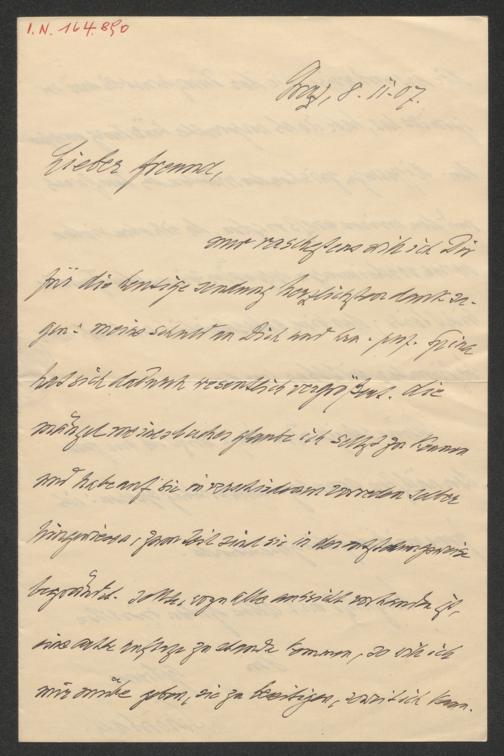 I.N. 164.890
Graz, 8. II. 07.
Lieber freund,
nur raschestens will ich Dir
für die heutige sendung herzlichsten dank sa-
gen: meine schuld an Dich und hrn. prof.
hat sich dadurch wesentlich vergrößert. die
mängel meines buches glaube ich selbst zu kennen
und habe auf sie in verschiedenen vorreden selber
hingewiesen, zum teil sind sie in der
begründet. sollte, wozu alle aussicht vorhanden ist,
eine achte auflage zu stande kommen, so will ich
mir mühe geben, sie zu beseitigen, soweit ich kann.